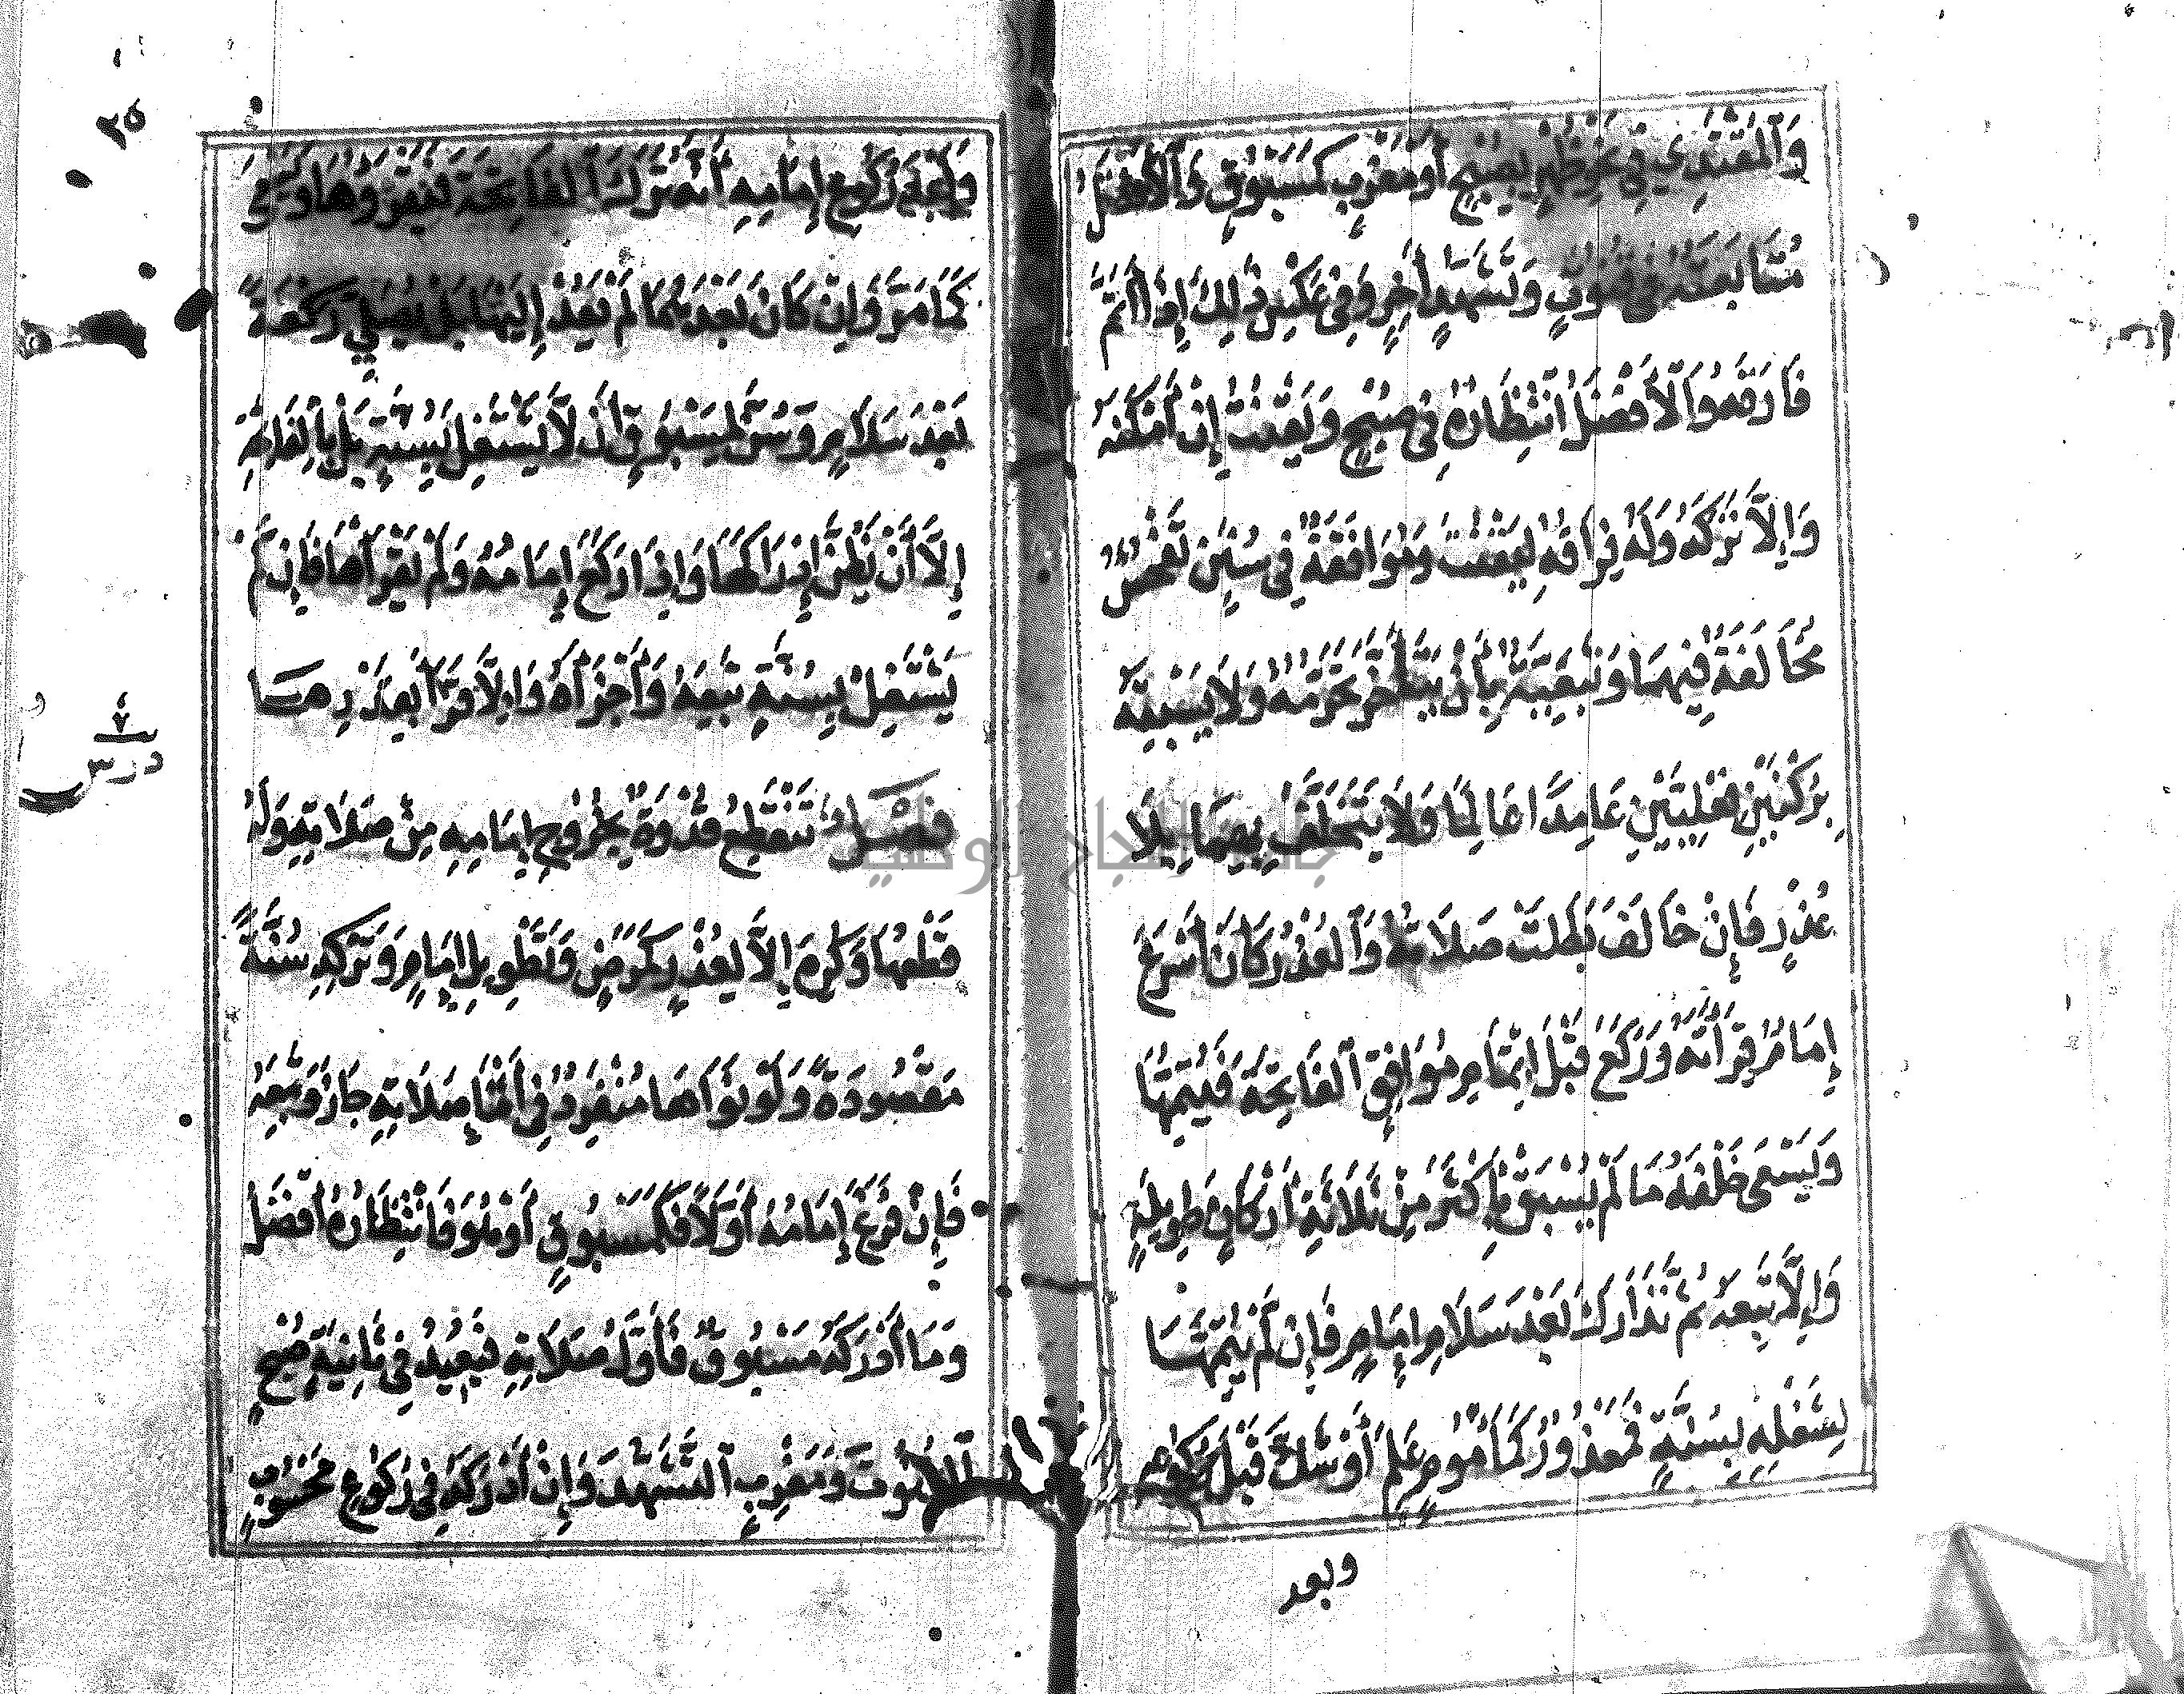 وَٱلْمُقْتَدِي فِي نَحْوِ ظُهْرٍ بِصُبْحٍ أَوْ مَغْرِبٍ كَمَسْبُوقٍ وَٱلْأَفْضَلُ
مُتَابَعَتُهُ فِي قُنُوتٍ وَتَشَهُّدٍ أَخِرٍ وَفِي عَكْسِ ذٰلِكَ إِذَا أَتَمَّ
فَارَقَهُ وَٱلْأَفْضَلُ ٱنْتِظَارُهُ فِي صُبْحٍ وَيَقْنُتُ إِنْ أَمْكَنَهُ
وَإِلَّا تَرَكَهُ وَلَهُ فِرَاقُهُ لِيَقْنُتَ وَمُوَافَقَةٌ فِي سُنَنٍ تَفْحُشُ
مُخَالَفَةٌ فِيهَا وَتَبَعِيَّةٌ بِأَنْ يَتَأَخَّرَ تَحَرُّمُهُ وَلَا يَسْبِقَهُ
بِرُكْنَيْنِ فِعْلِيَّيْنِ عَامِدًا عَالِمًا وَلَا يَتَخَلَّفَ بِهِمَا بِلَا
عُذْرٍ فَإِنْ خَالَفَ بَطَلَتْ صَلَاتُهُ وَٱلْعُذْرُ كَأَنْ أَسْرَعَ
إِمَامٌ قِرَأَتَهُ وَرَكَعَ قَبْلَ إِتْمَامِ مُوَافِقٍ ٱلْفَاتِحَةَ فَيُتِمُّهَا
وَيَسْعَى خَلْفَهُ مَا لَمْ يُسْبَقْ بِأَكْثَرَ مِنْ ثَلَاثَةِ أَرْكَانٍ طَوِيلَةٍ
وَإِلَّا تَبِعَهُ ثُمَّ تَدَارَكَ بَعْدَ سَلَامِ إِمَامٍ فَإِنْ لَمْ يُتِمَّهَا
لِشُغْلِهِ بِسُنَّةٍ فَمَعْذُورٌ كَمَأْمُومٍ عَلِمَ أَوْ شَكَّ قَبْلَ رُكُوعِهِ
وبعد
٢٥
وَبَعْدَ رُكُوعِ إِمَامِهِ أَنَّهُ تَرَكَ ٱلْفَاتِحَةَ فَيَقْرَؤُهَا وَيَسْعَى
كَمَا مَرَّ وَإِنْ كَانَ بَعْدَهُمَا لَمْ يَعُدْ إِلَيْهَا بَلْ يُصَلِّي رَكْعَةً
بَعْدَ سَلَامٍ وَسُنَّ لِمَسْبُوقٍ أَنْ لَا يَشْتَغِلَ بِسُنَّةٍ بَلْ بِالْفَاتِحَةِ
إِلَّا أَنْ يَظُنَّ إِدْرَاكَهَا وَإِذَا رَكَعَ إِمَامُهُ وَلَمْ يَقْرَأْهَا فَإِنْ لَمْ
يَشْتَغِلْ بِسُنَّةٍ تَبِعَهُ وَأَجْزَأَهُ وَإِلَّا قَرَأَ بِقَدْرِهَا
فَصْلٌ تَنْقَطِعُ قُدْوَةٌ بِخُرُوجِ إِمَامِهِ مِنْ صَلَاتِهِ وَلَهُ
قَطْعُهَا وَكُرِهَ إِلَّا لِعُذْرٍ كَمَرَضٍ وَتَطْوِيلِ إِمَامٍ وَتَرْكِهِ سُنَّةً
مَقْصُودَةً وَلَوْ نَوَاهَا مُنْفَرِدٌ فِي أَثْنَاءِ صَلَاتِهِ جَازَ وَتَبِعَهُ
فَإِنْ فَرَغَ إِمَامُهُ أَوَّلًا فَكَمَسْبُوقٍ أَوْ هُوَ فَانْتِظَارُهُ أَفْضَلُ
وَمَا أَدْرَكَهُ مَسْبُوقٌ فَأَوَّلُ صَلَاتِهِ فَيُعِيدُ فِي ثَانِيَةِ صُبْحٍ
ٱلْقُنُوتَ وَمَغْرِبٍ ٱلتَّشَهُّدَ وَإِنْ أَدْرَكَهُ فِي رُكُوعٍ مَحْسُوبٍ
٧
درس